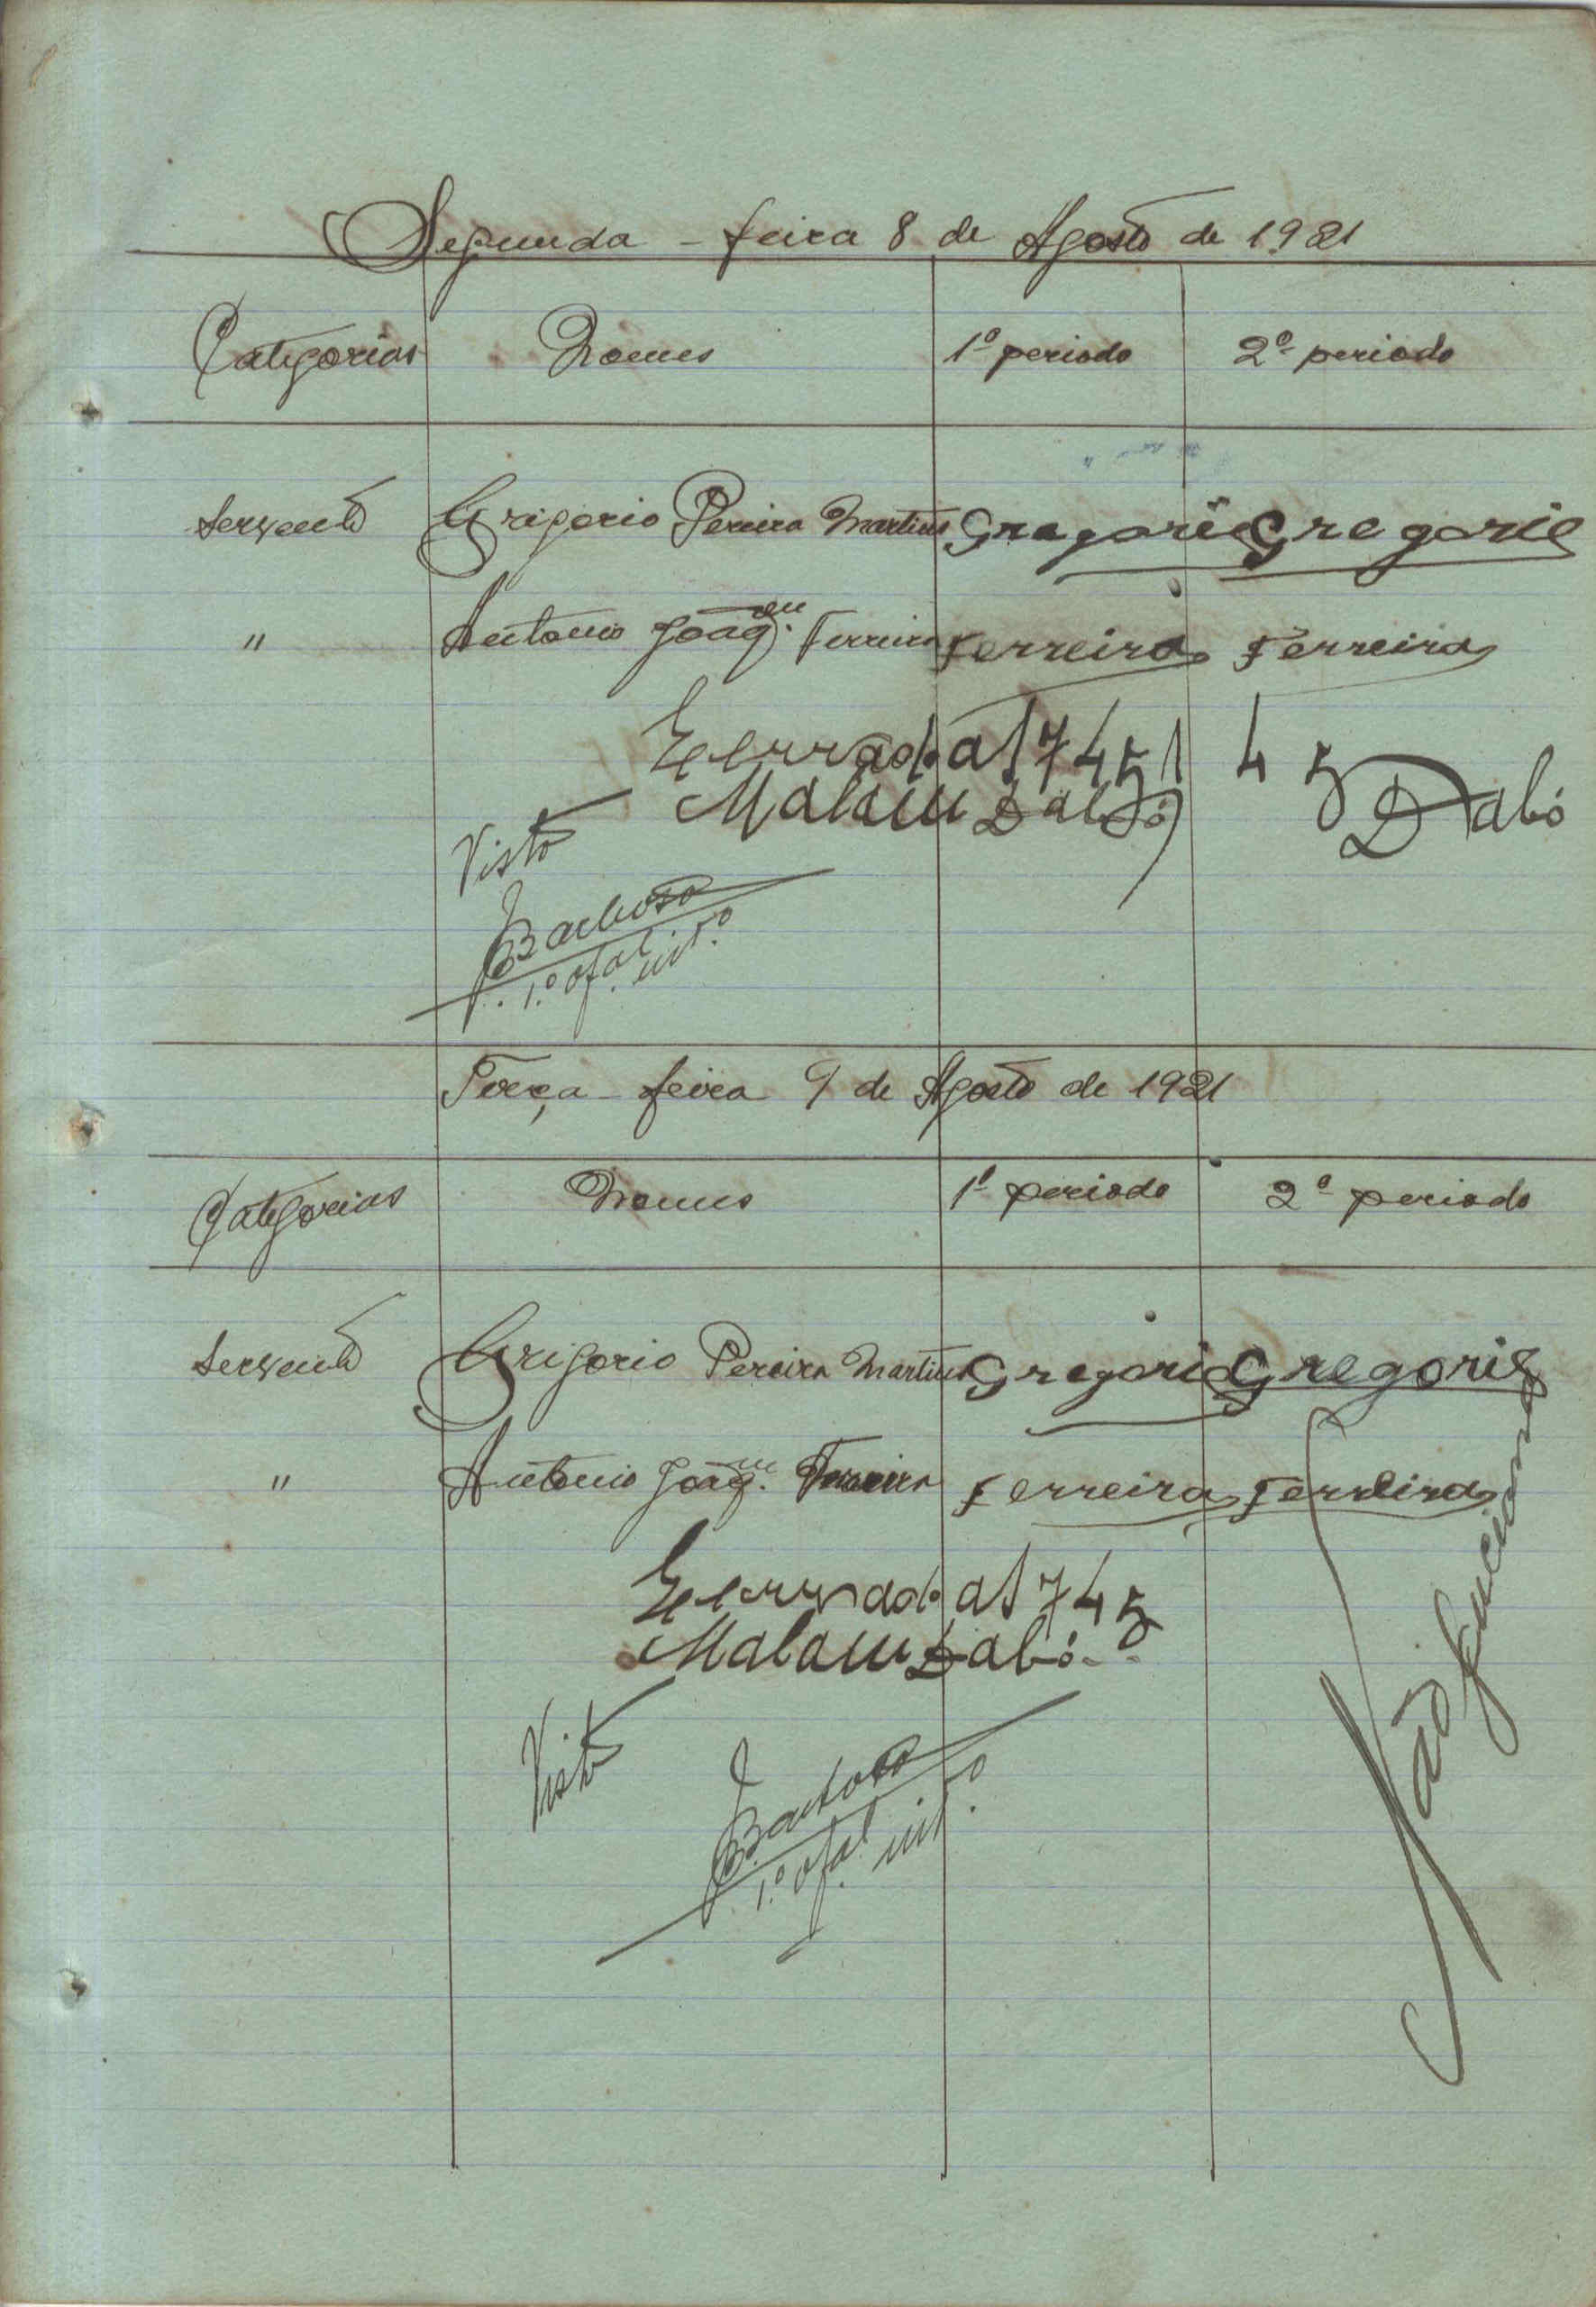 Segunda - feira 8 de Agosto de 1921
Categorias Nomes 1º periodo 2º periodo
Servente Grigorio Pereira Martins Gregorio Gregorio
" Antonio Joaqm. Ferreira Ferreira Ferreira
Encerrado as 7 45 4 5
Malam Dabó Dabó
Visto
Barbosa
1.º ofal. intº.
Terça - feira 9 de Agosto de 1921
Categorias Nomes 1º periodo 2º periodo
Servente Grigorio Pereira Martins Gregorio Gregorio
" Antonio Joaqm. Ferreira Ferreira Ferreira
Encerrado as 7 45
Malam Dabó
Visto
Barbosa
1.º ofal. intº.
Não funciona